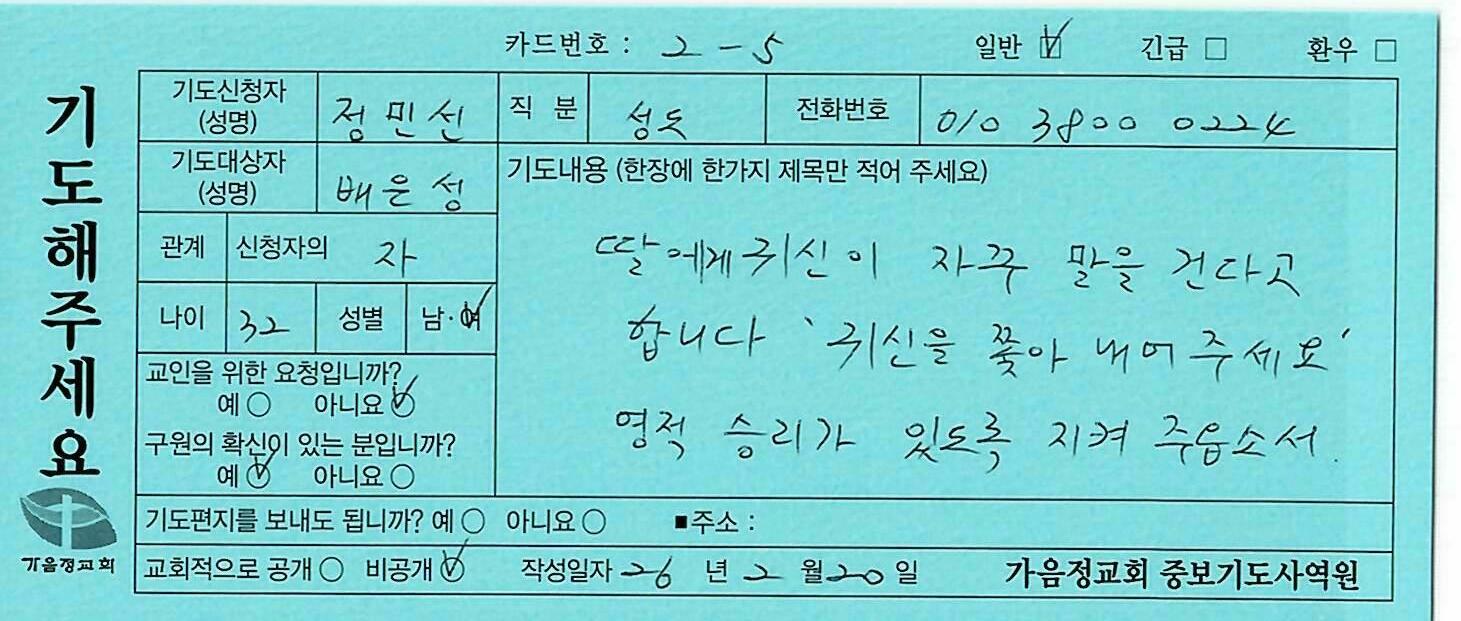 카드번호 : 2-5 일반 긴급 환우
기도해주세요
기도신청자 (성명) 정민선 직 분 성도 전화번호 010 3800 0224
기도대상자 (성명) 배은성
기도내용 (한장에 한가지 제목만 적어 주세요)
관계 신청자의 자
나이 32 성별 남·여
딸에게 귀신이 자꾸 말을 건다고
합니다 '귀신을 쫓아 내어주세요'
영적 승리가 있도록 지켜 주옵소서.
교인을 위한 요청입니까?
예 아니요
구원의 확신이 있는 분입니까?
예 아니요
기도편지를 보내도 됩니까? 예 아니요 ■주소 :
교회적으로 공개 비공개 작성일자 26 년 2 월 20 일 가음정교회 중보기도사역원
가음정교회